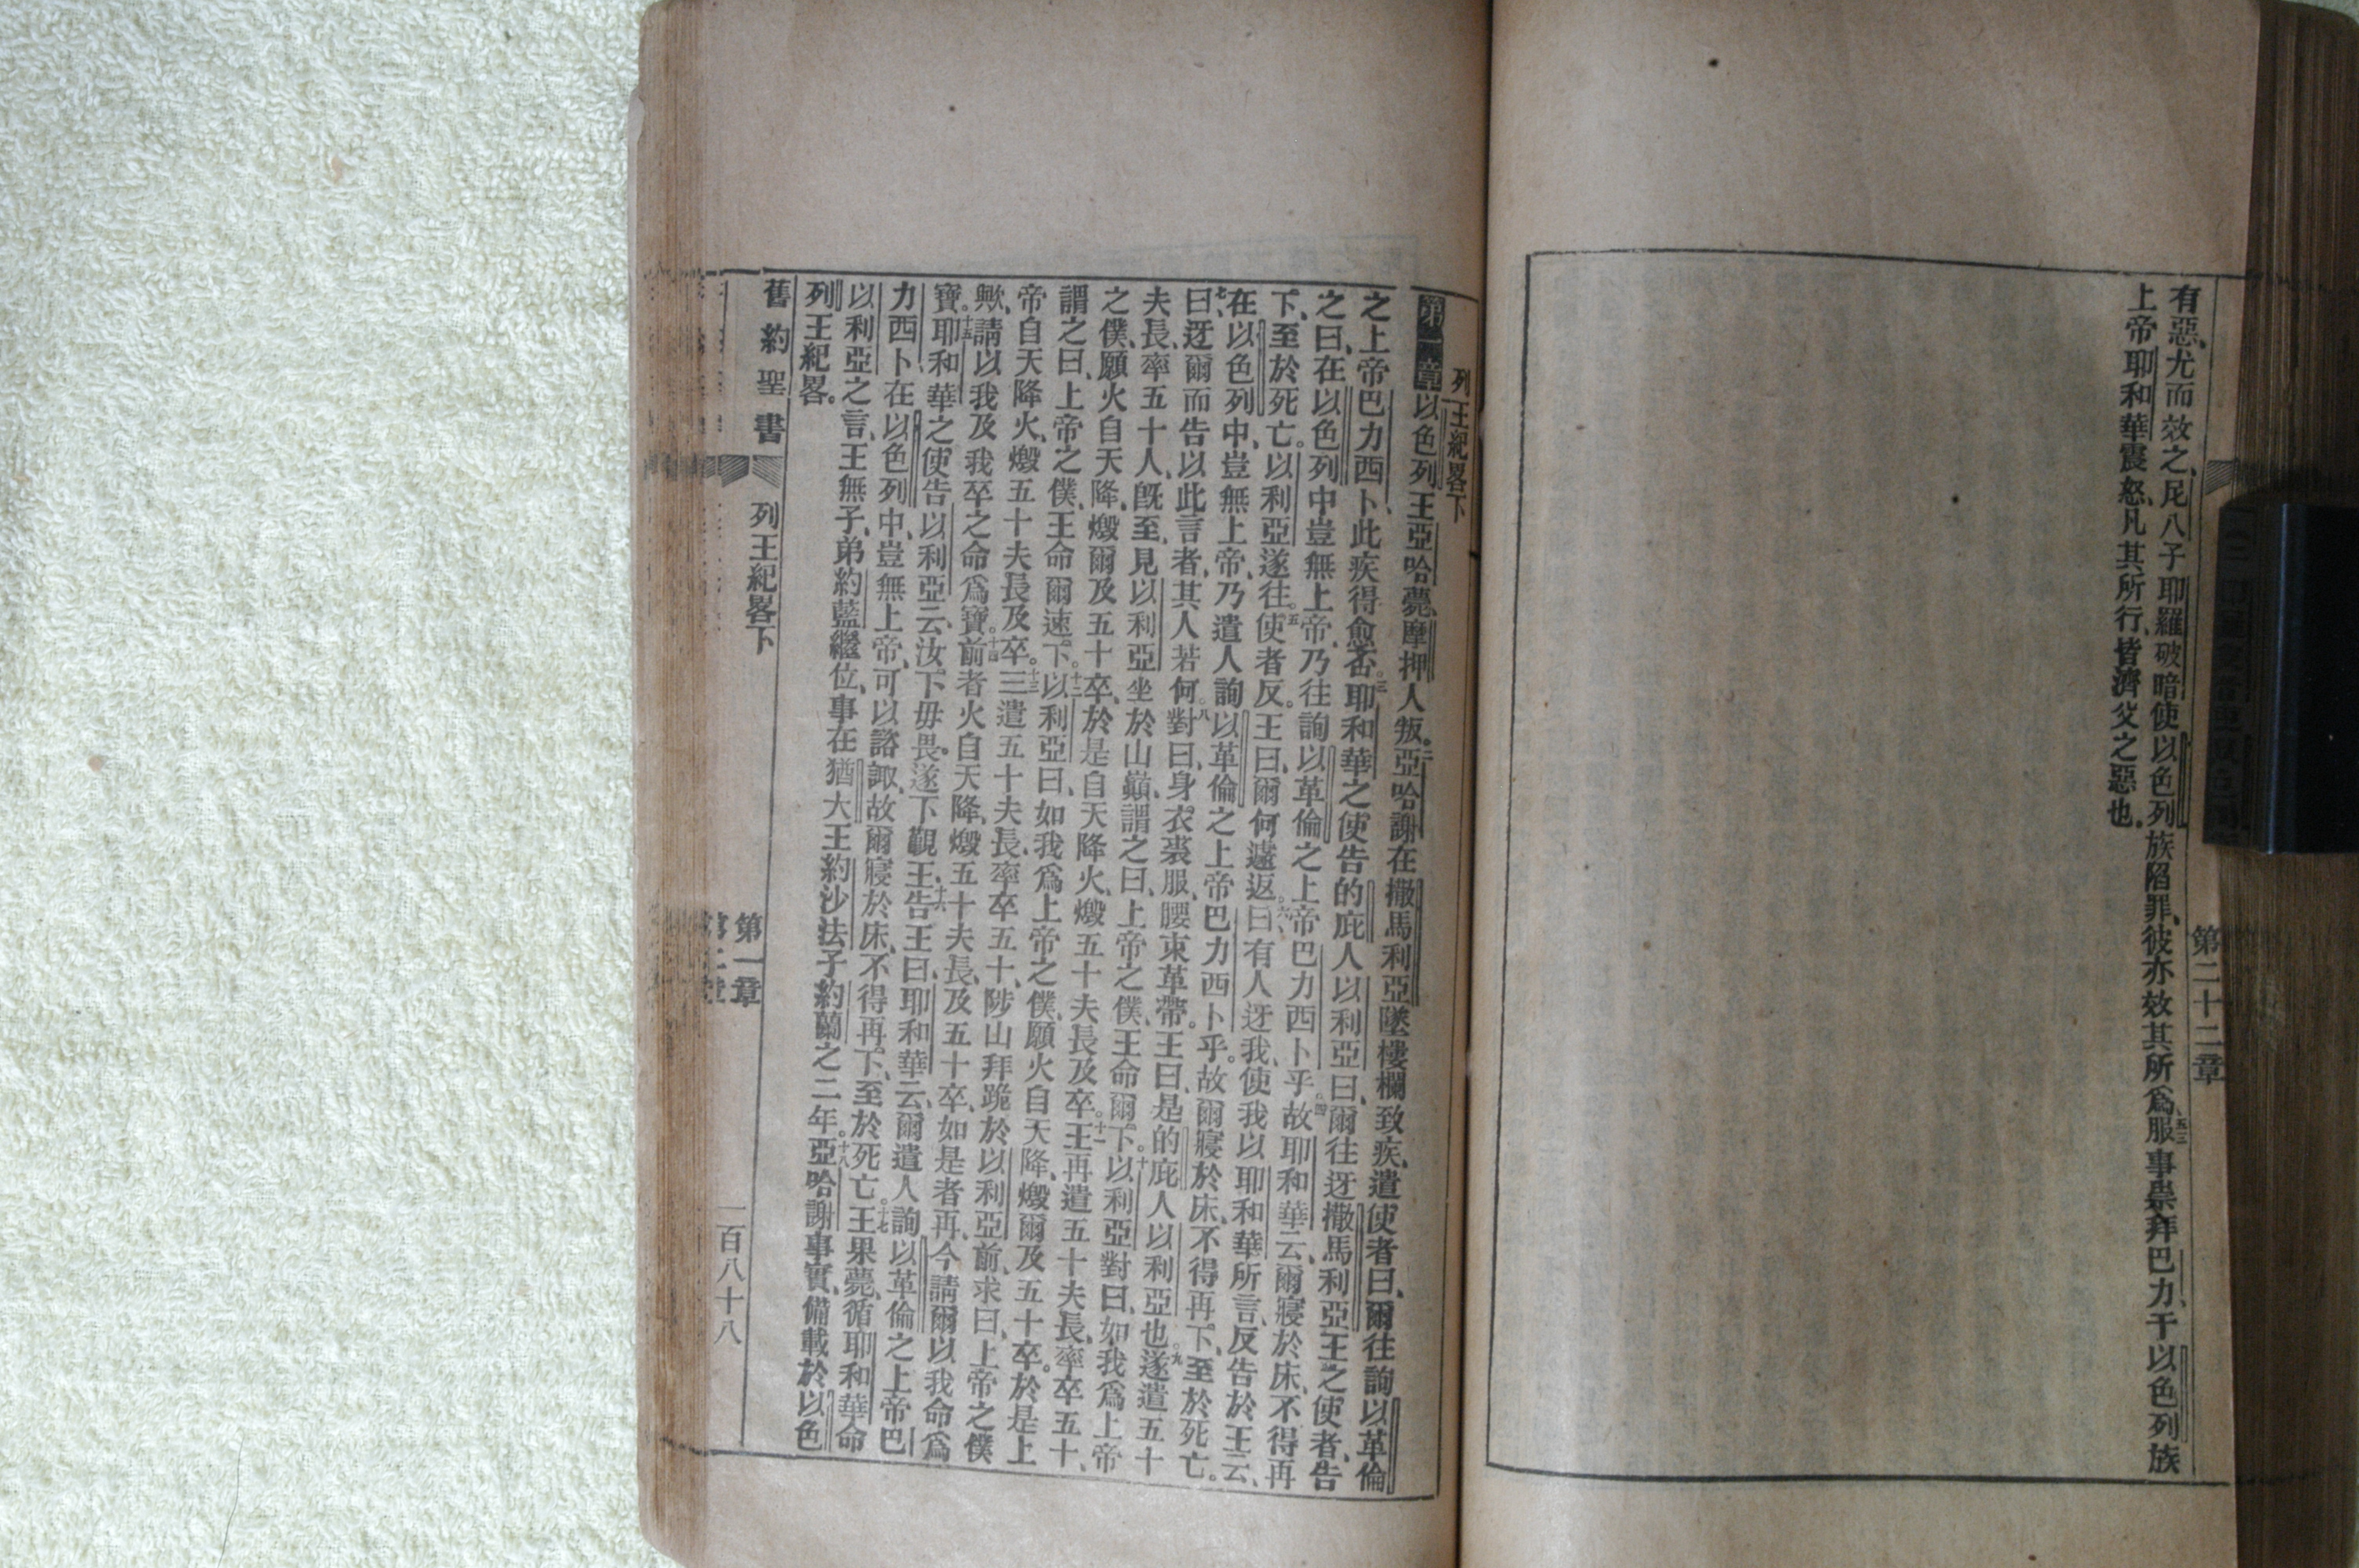 第二十二章
有惡、尤而效之、尼八子耶羅破暗使以色列族陷罪、彼亦效其所爲、五三服事崇拜巴力、干以色列族
上帝耶和華震怒、凡其所行、皆濟父之惡也。
列王紀畧下
第一章以色列王亞哈薨、摩押人叛。二亞哈謝在撒馬利亞墜樓欄致疾、遣使者曰、爾往詢以革倫
之上帝巴力西卜、此疾得愈否。三耶和華之使告的庇人以利亞曰、爾往迓撒馬利亞王之使者、告
之曰、在以色列中豈無上帝、乃往詢以革倫之上帝巴力西卜乎。四故耶和華云、爾寢於床、不得再
下、至於死亡。以利亞遂往。五使者反。王曰、爾何遽返。六曰有人迓我、使我以耶和華所言、反告於王云、
在以色列中、豈無上帝、乃遣人詢以革倫之上帝巴力西卜乎。故爾寢於床、不得再下、至於死亡。
七曰、迓爾而告以此言者、其人若何。八對曰、身衣裘服、腰束革帶。王曰、是的庇人以利亞也。九遂遣五十
夫長、率五十人、旣至、見以利亞坐於山巔、謂之曰、上帝之僕、王命爾下。十以利亞對曰、如我爲上帝
之僕、願火自天降、燬爾及五十卒、於是自天降火、燬五十夫長及卒。十一王再遣五十夫長、率卒五十、
謂之曰、上帝之僕、王命爾速下。十二以利亞曰、如我爲上帝之僕、願火自天降、燬爾及五十卒。於是上
帝自天降火、燬五十夫長及卒。十三三遣五十夫長、率卒五十、陟山拜跪於以利亞前、求曰、上帝之僕
歟、請以我及我卒之命爲寶。十四前者火自天降、燬五十夫長、及五十卒、如是者再、今請爾以我命爲
寶。十五耶和華之使告以利亞云、汝下毋畏。遂下觀王、十六告王曰、耶和華云、爾遣人詢以革倫之上帝巴
力西卜、在以色列中、豈無上帝、可以諮諏、故爾寢於床、不得再下、至於死亡。十七王果薨、循耶和華命
以利亞之言、王無子、弟約藍繼位、事在猶大王約沙法子約蘭之二年。十八亞哈謝事實、備載於以色
列王紀畧。
舊約聖書 列王紀畧下 第一章 一百八十八